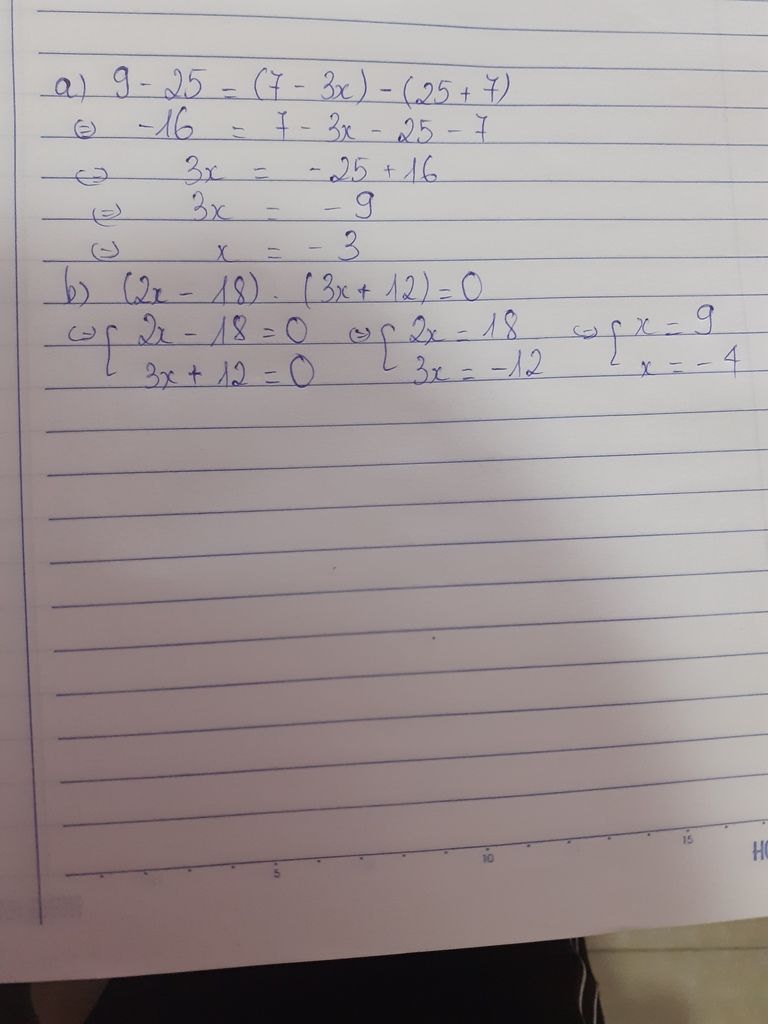 a) 9 - 25 = (7 - 3x) - (25 + 7)
⇔ -16 = 7 - 3x - 25 - 7
⇔ 3x = -25 + 16
⇔ 3x = -9
⇔ x = -3
b) (2x - 18) . (3x + 12) = 0
⇔ [ 2x - 18 = 0 ⇔ [ 2x = 18 ⇔ [ x = 9
3x + 12 = 0 3x = -12 x = -4
5 10 15